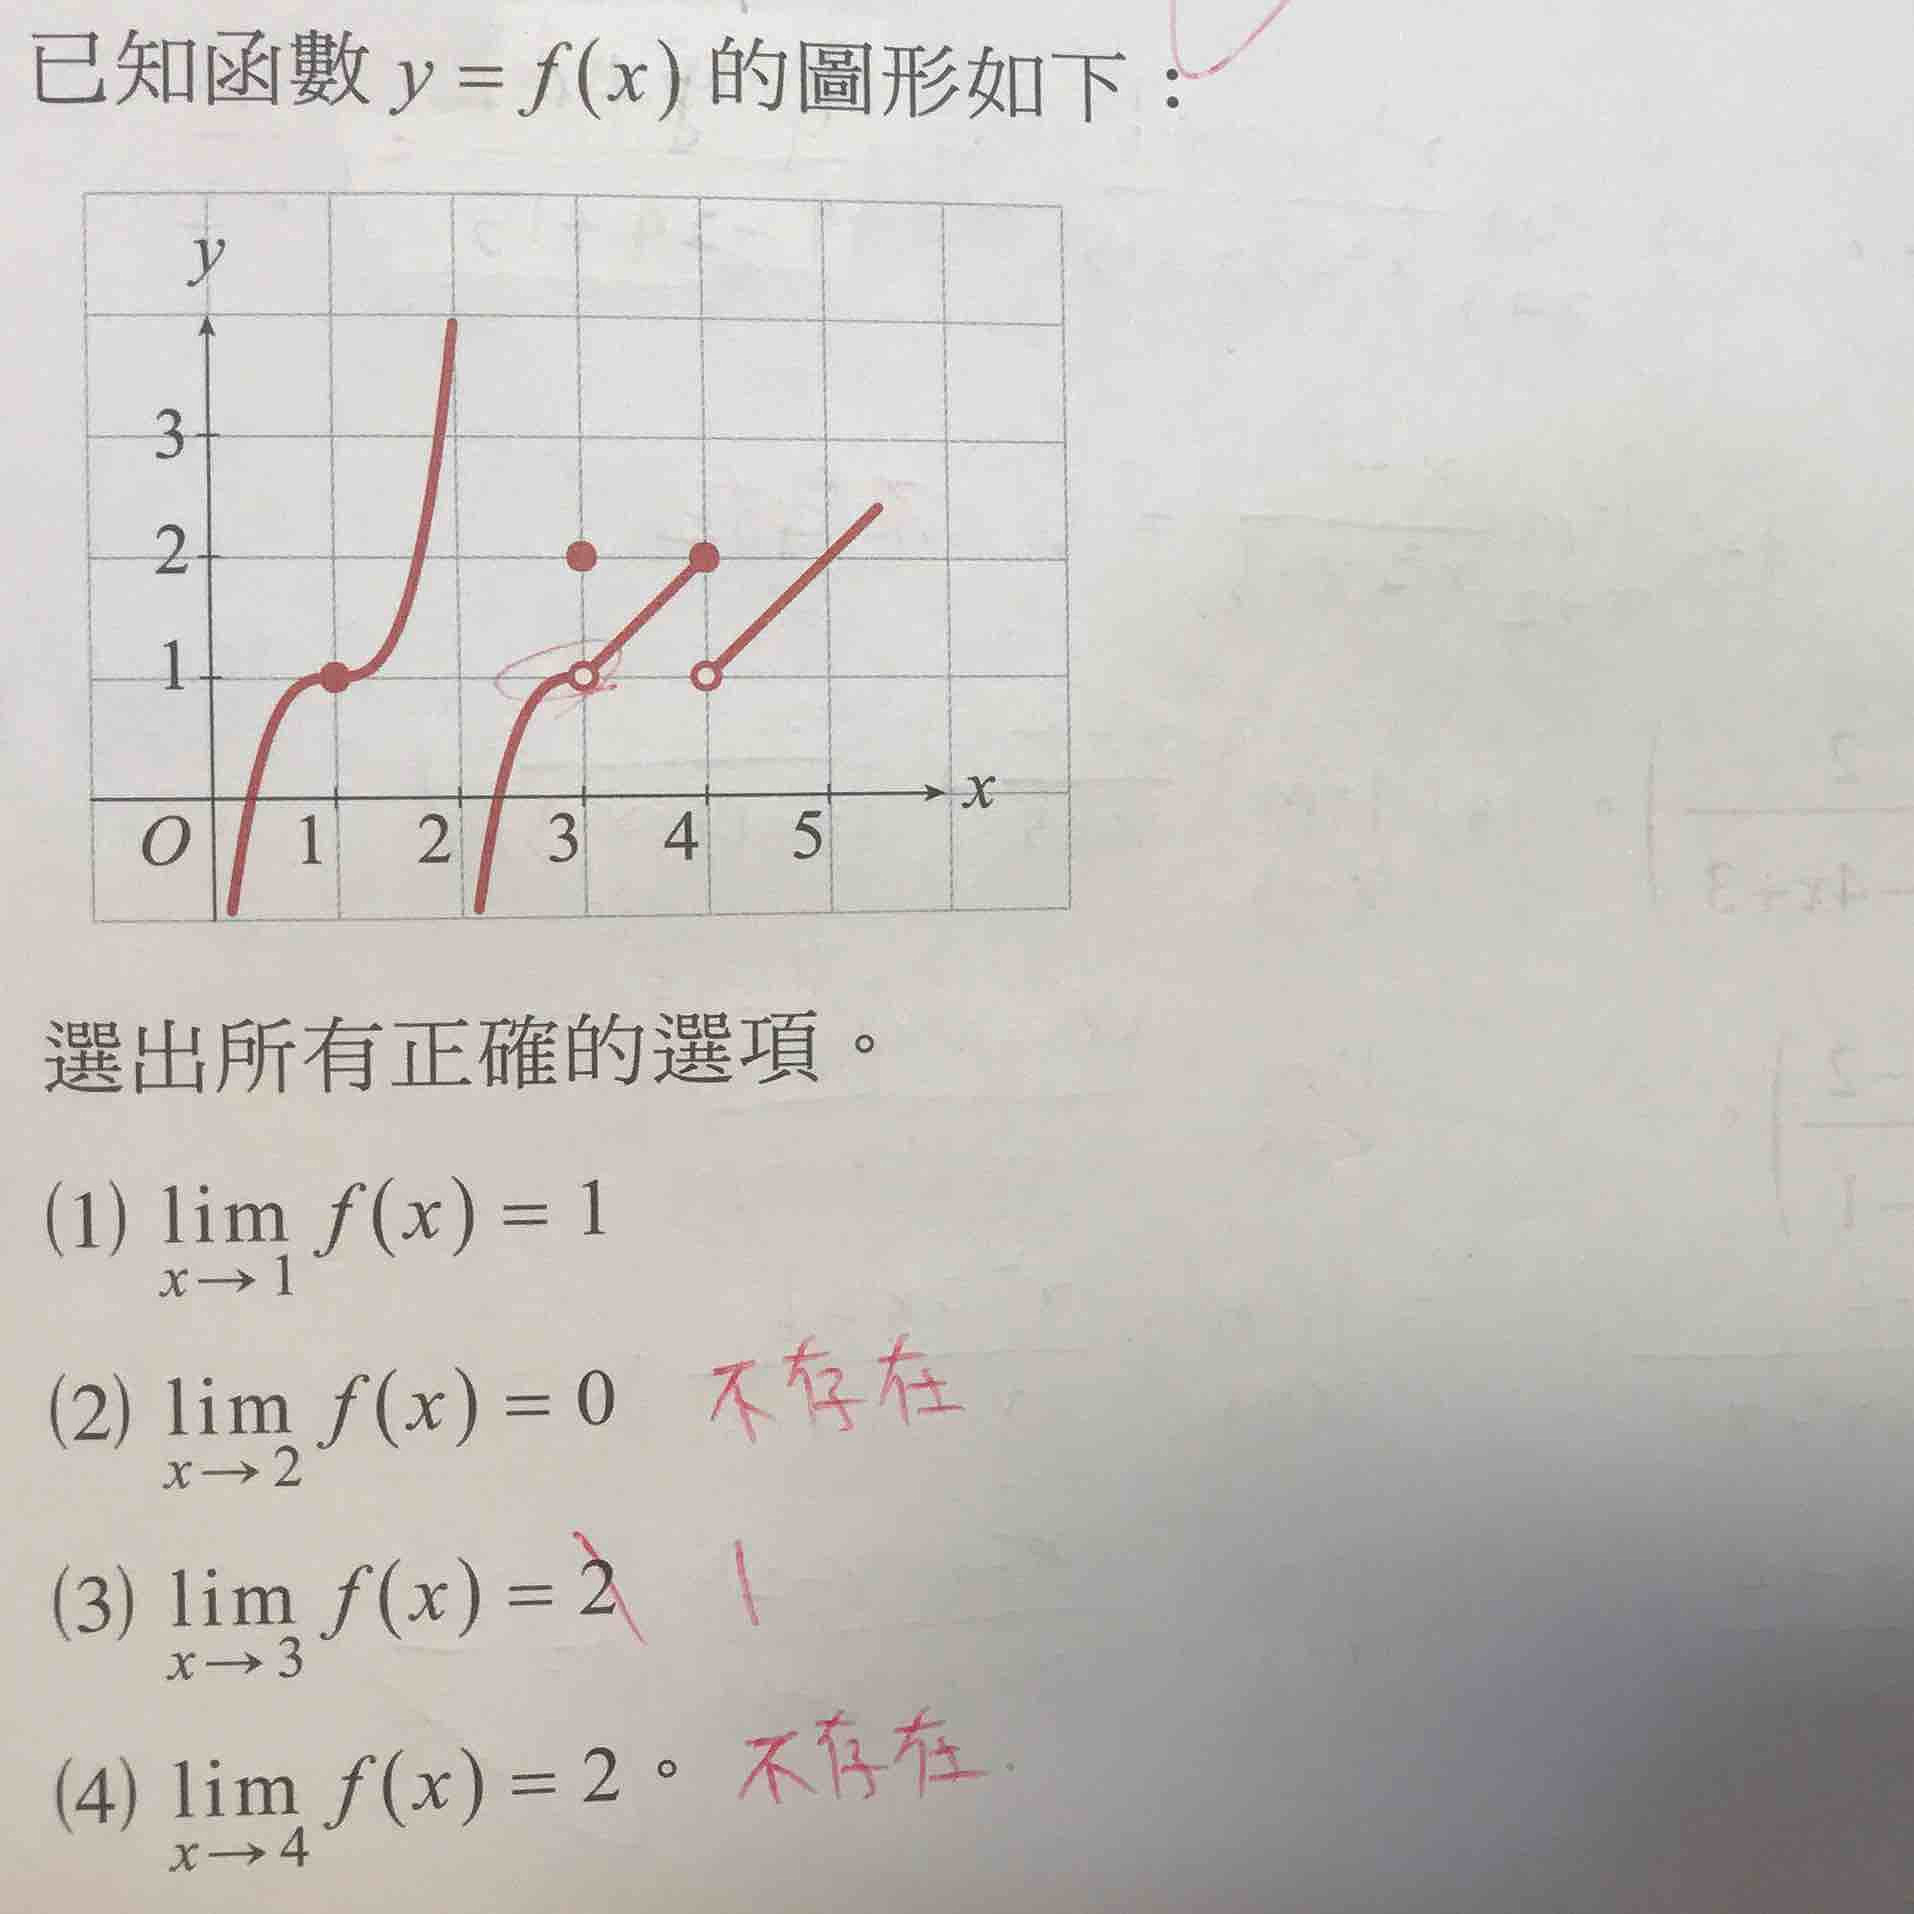 已知函數 y = f(x) 的圖形如下：
y
3
2
1
O 1 2 3 4 5 x
選出所有正確的選項。
(1) lim f(x) = 1
x→1
(2) lim f(x) = 0 不存在
x→2
(3) lim f(x) = 2 1
x→3
(4) lim f(x) = 2。不存在.
x→4